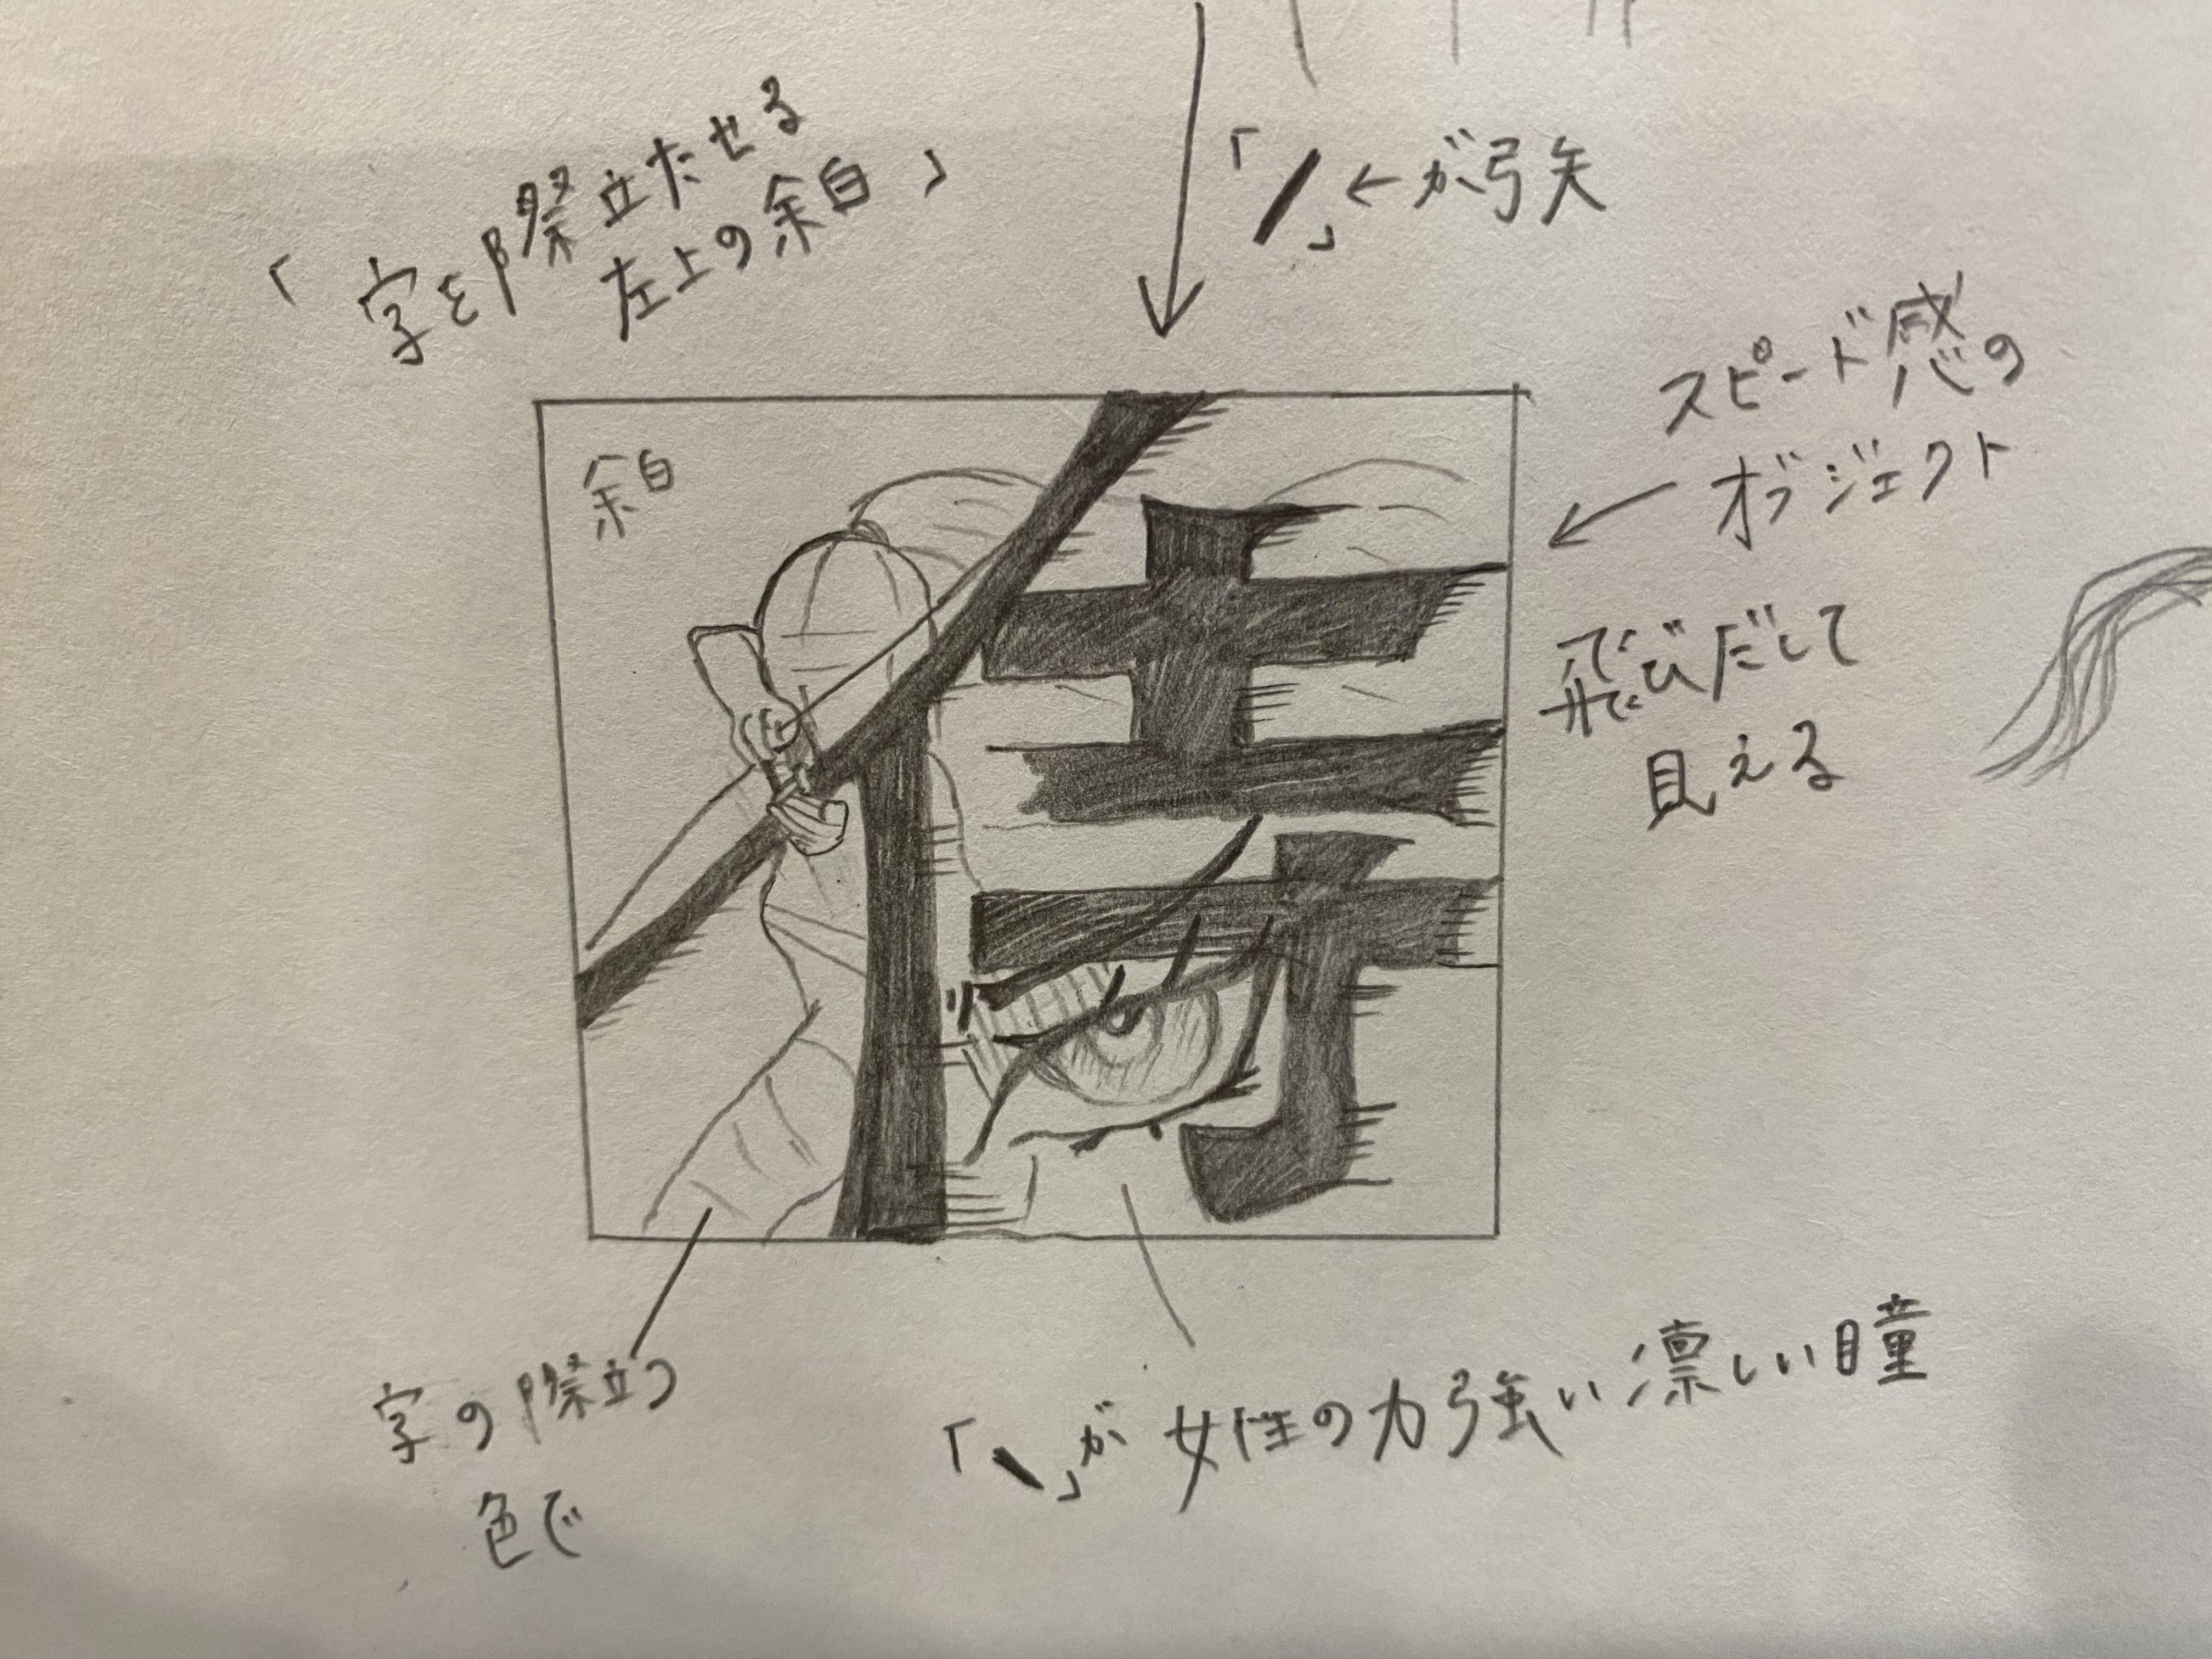 「字を際立たせる
左上の余白」
「ノ」←が弓矢
スピード感の
オブジェクト
飛びだして
見える
余白
侍
字の際立つ
色で
「丶」が女性の力強い凛しい瞳